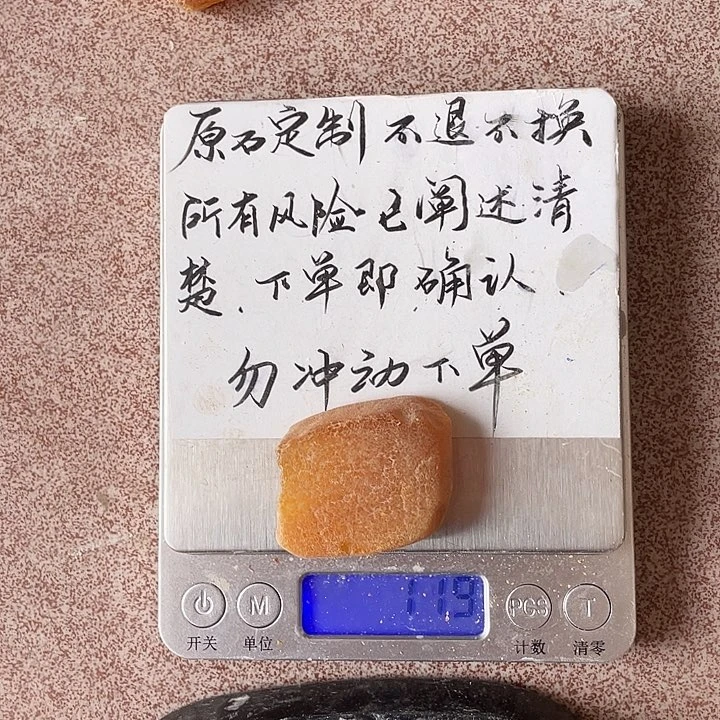 原石定制 不退不换
所有风险已阐述清
楚.下单即确认.
勿冲动下单
119
M
PCS
T
开关
单位
计数
清零